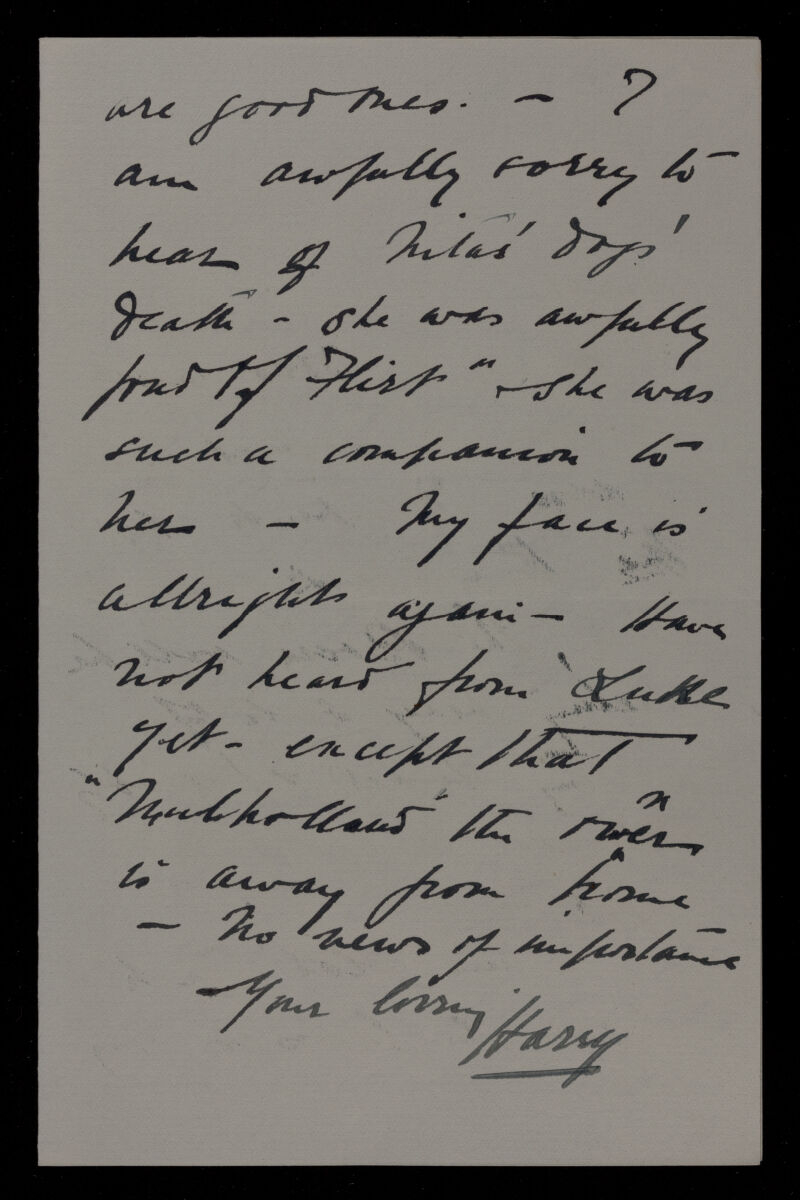 are good ones. – I
am awfully sorry to
hear of Nitas' dogs'
death – she was awfully
fond of "Flirt" – she was
such a companion to
her – My face is
allright again – Have
not heard from Luke
yet – except that
"Mulholland" the owner
is away from home
– No news of importance
Your loving Harry